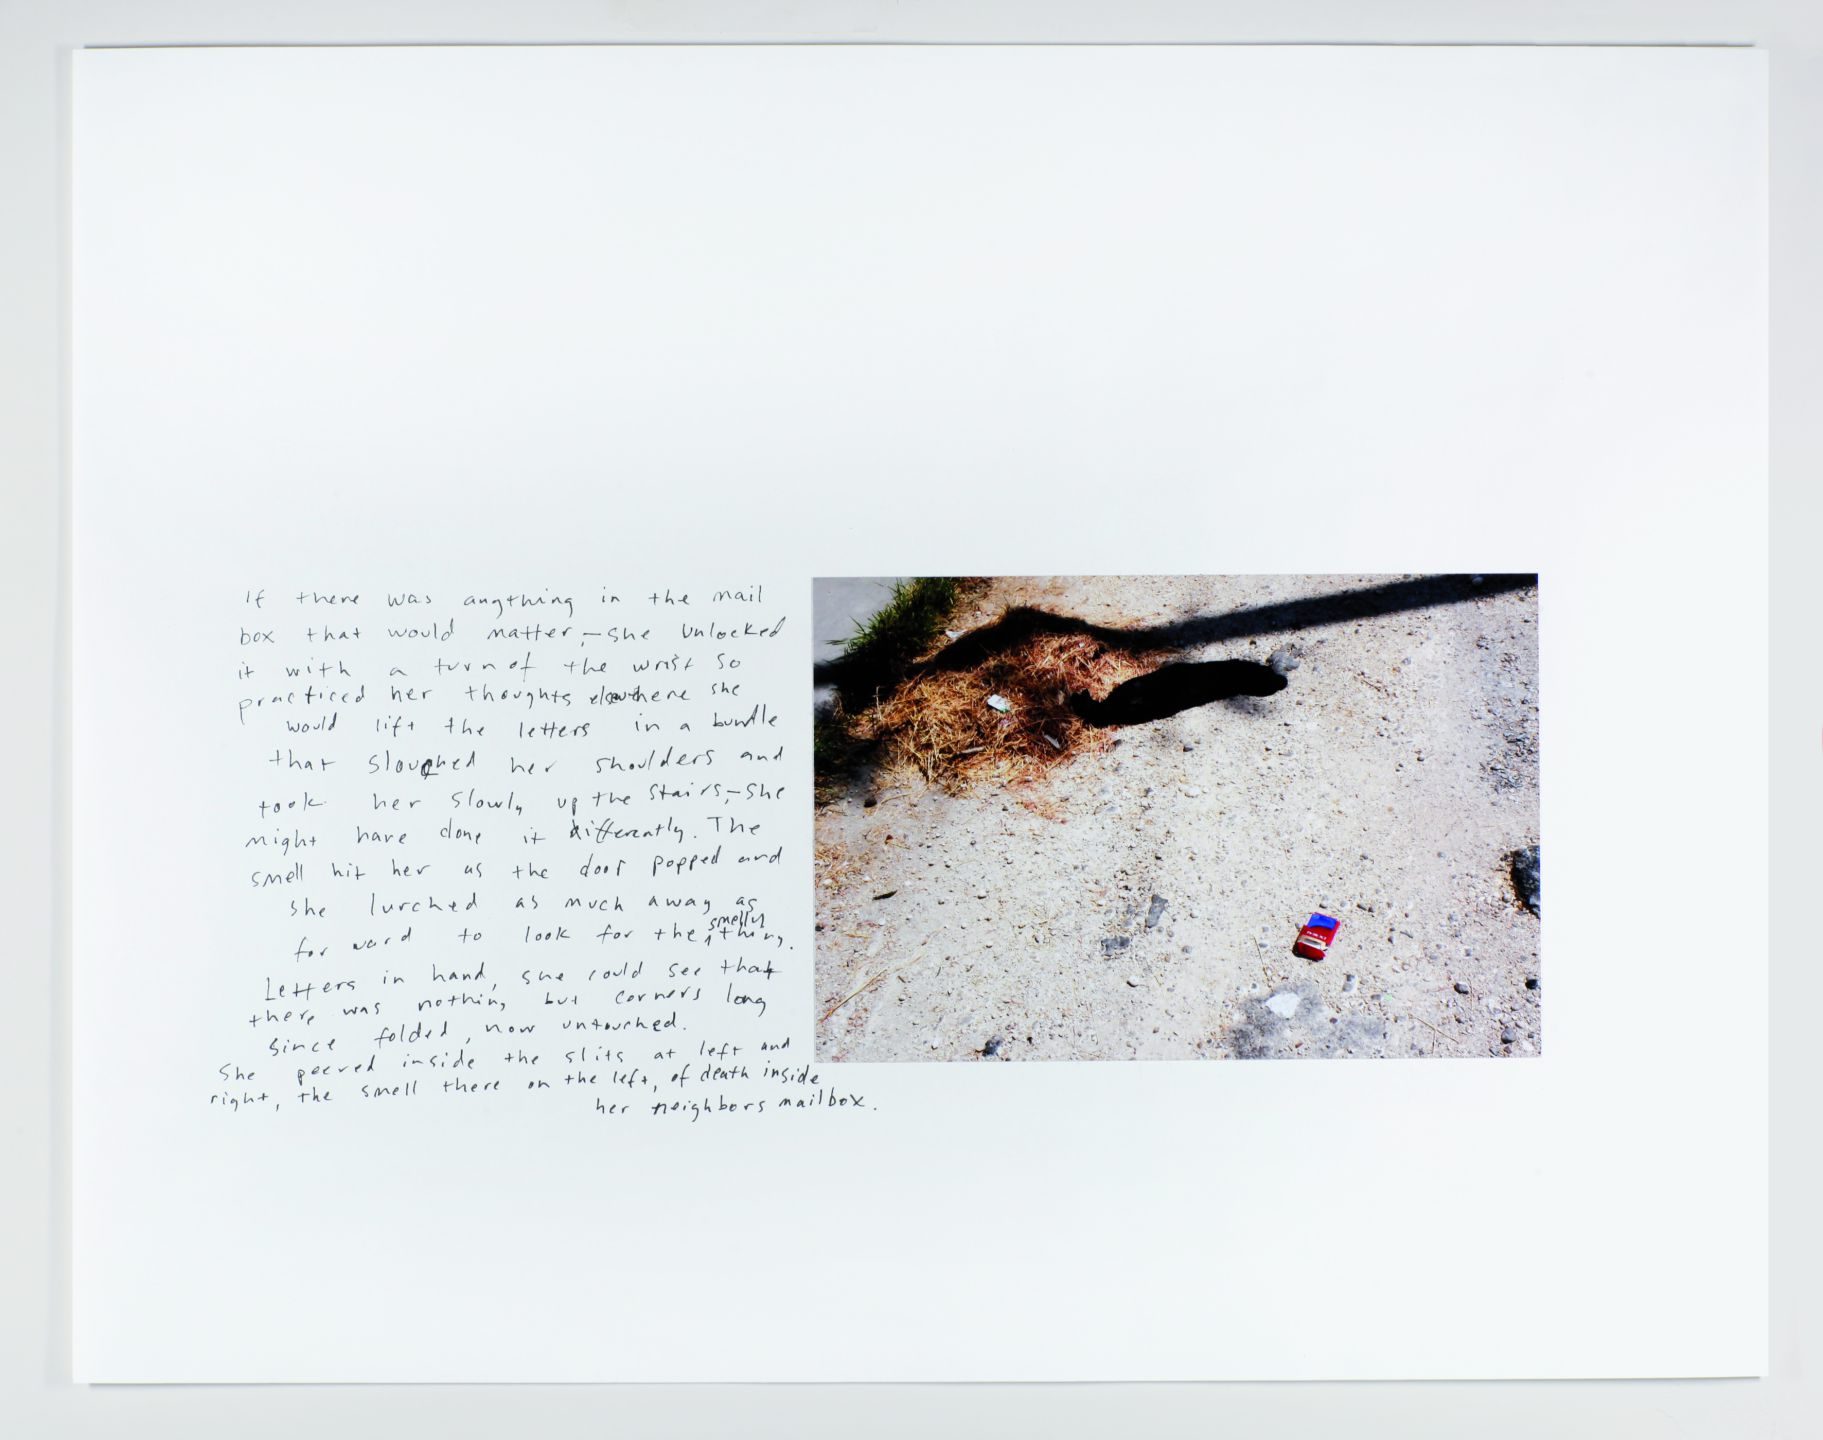 If there was anything in the mail
box that would matter, – she unlocked
it with a turn of the wrist so
practiced her thoughts elsewhere she
would lift the letters in a bundle
that slouched her shoulders and
took her slowly up the stairs, – she
might have done it differently. The
smell hit her as the door popped and
she lurched as much away as
for ward to look for the smelly thing.
Letters in hand, she could see that
there was nothing but corners long
since folded, now untouched.
She peered inside the slits at left and
right, the smell there on the left, of death inside
her neighbors mailbox.